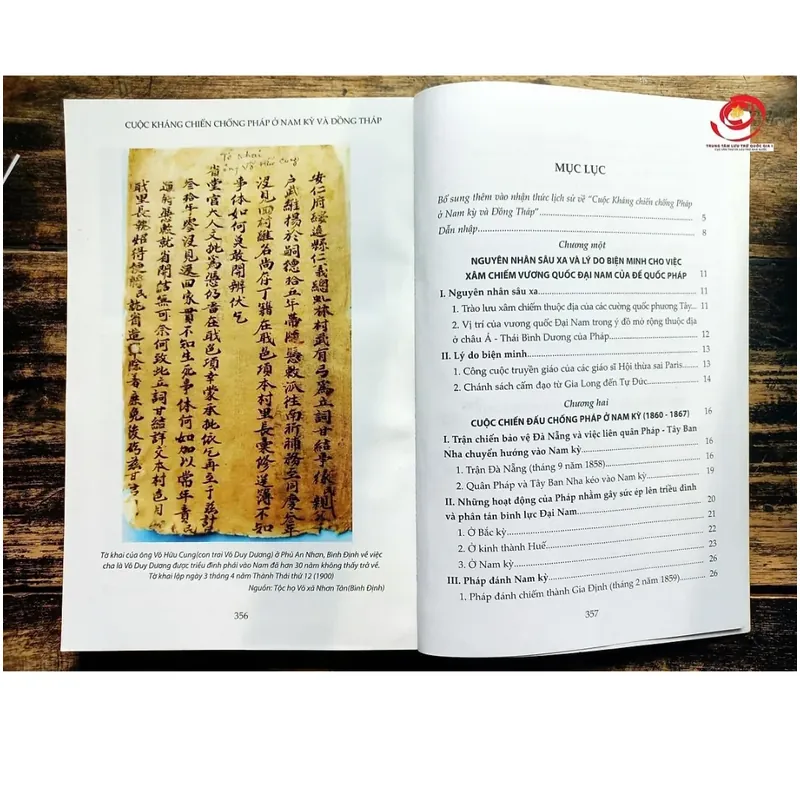 CUỘC KHÁNG CHIẾN CHỐNG PHÁP Ở NAM KỲ VÀ ĐỒNG THÁP
Tờ khai
ông Võ Hữu Cung
安仁府綏遠縣仁義總虬林村武有弓爲立詞甘結事緣親
父武維揚於嗣德拾五年帶隨憑敕派往南圻補務至同慶叁年
沒見回村維名尚存丁籍在戢邑項本村里長稟修進簿不知
事体如何莫敢開辦伏乞
省堂官大人文批爲憑仍旨在戢邑項幸蒙承批依乞再立于茲計
叁拾年沒見還回家貫不知生死事体何如加以常年責民
憑數就省開結無可奈何致此立詞甘結詳交本村色目
戢里長招得便將民省道除庶免後茲甘
Tờ khai của ông Võ Hữu Cung(con trai Võ Duy Dương) ở Phủ An Nhơn, Bình Định về việc
cha là Võ Duy Dương được triều đình phái vào Nam đã hơn 30 năm không thấy trở về.
Tờ khai lập ngày 3 tháng 4 năm Thành Thái thứ 12 (1900)
Nguồn: Tộc họ Võ xã Nhơn Tân(Bình Định)
356
TRUNG TÂM LƯU TRỮ QUỐC GIA I
MỤC LỤC
Bổ sung thêm vào nhận thức lịch sử về "Cuộc Kháng chiến chống Pháp
ở Nam kỳ và Đồng Tháp" 5
Dẫn nhập 8
Chương một
NGUYÊN NHÂN SÂU XA VÀ LÝ DO BIỆN MINH CHO VIỆC
XÂM CHIẾM VƯƠNG QUỐC ĐẠI NAM CỦA ĐẾ QUỐC PHÁP 11
I. Nguyên nhân sâu xa 11
1. Trào lưu xâm chiếm thuộc địa của các cường quốc phương Tây 11
2. Vị trí của vương quốc Đại Nam trong ý đồ mở rộng thuộc địa
ở châu Á - Thái Bình Dương của Pháp 12
II. Lý do biện minh 13
1. Công cuộc truyền giáo của các giáo sĩ Hội thừa sai Paris 13
2. Chánh sách cấm đạo từ Gia Long đến Tự Đức 14
Chương hai
CUỘC CHIẾN ĐẤU CHỐNG PHÁP Ở NAM KỲ (1860 - 1867) 16
I. Trận chiến bảo vệ Đà Nẵng và việc liên quân Pháp - Tây Ban
Nha chuyển hướng vào Nam kỳ 16
1. Trận Đà Nẵng (tháng 9 năm 1858) 16
2. Quân Pháp và Tây Ban Nha kéo vào Nam kỳ 19
II. Những hoạt động của Pháp nhằm gây sức ép lên triều đình
và phân tán binh lực Đại Nam 20
1. Ở Bắc kỳ 21
2. Ở kinh thành Huế 22
3. Ở Nam kỳ 23
III. Pháp đánh Nam kỳ 26
1. Pháp đánh chiếm thành Gia Định (tháng 2 năm 1859) 26
357